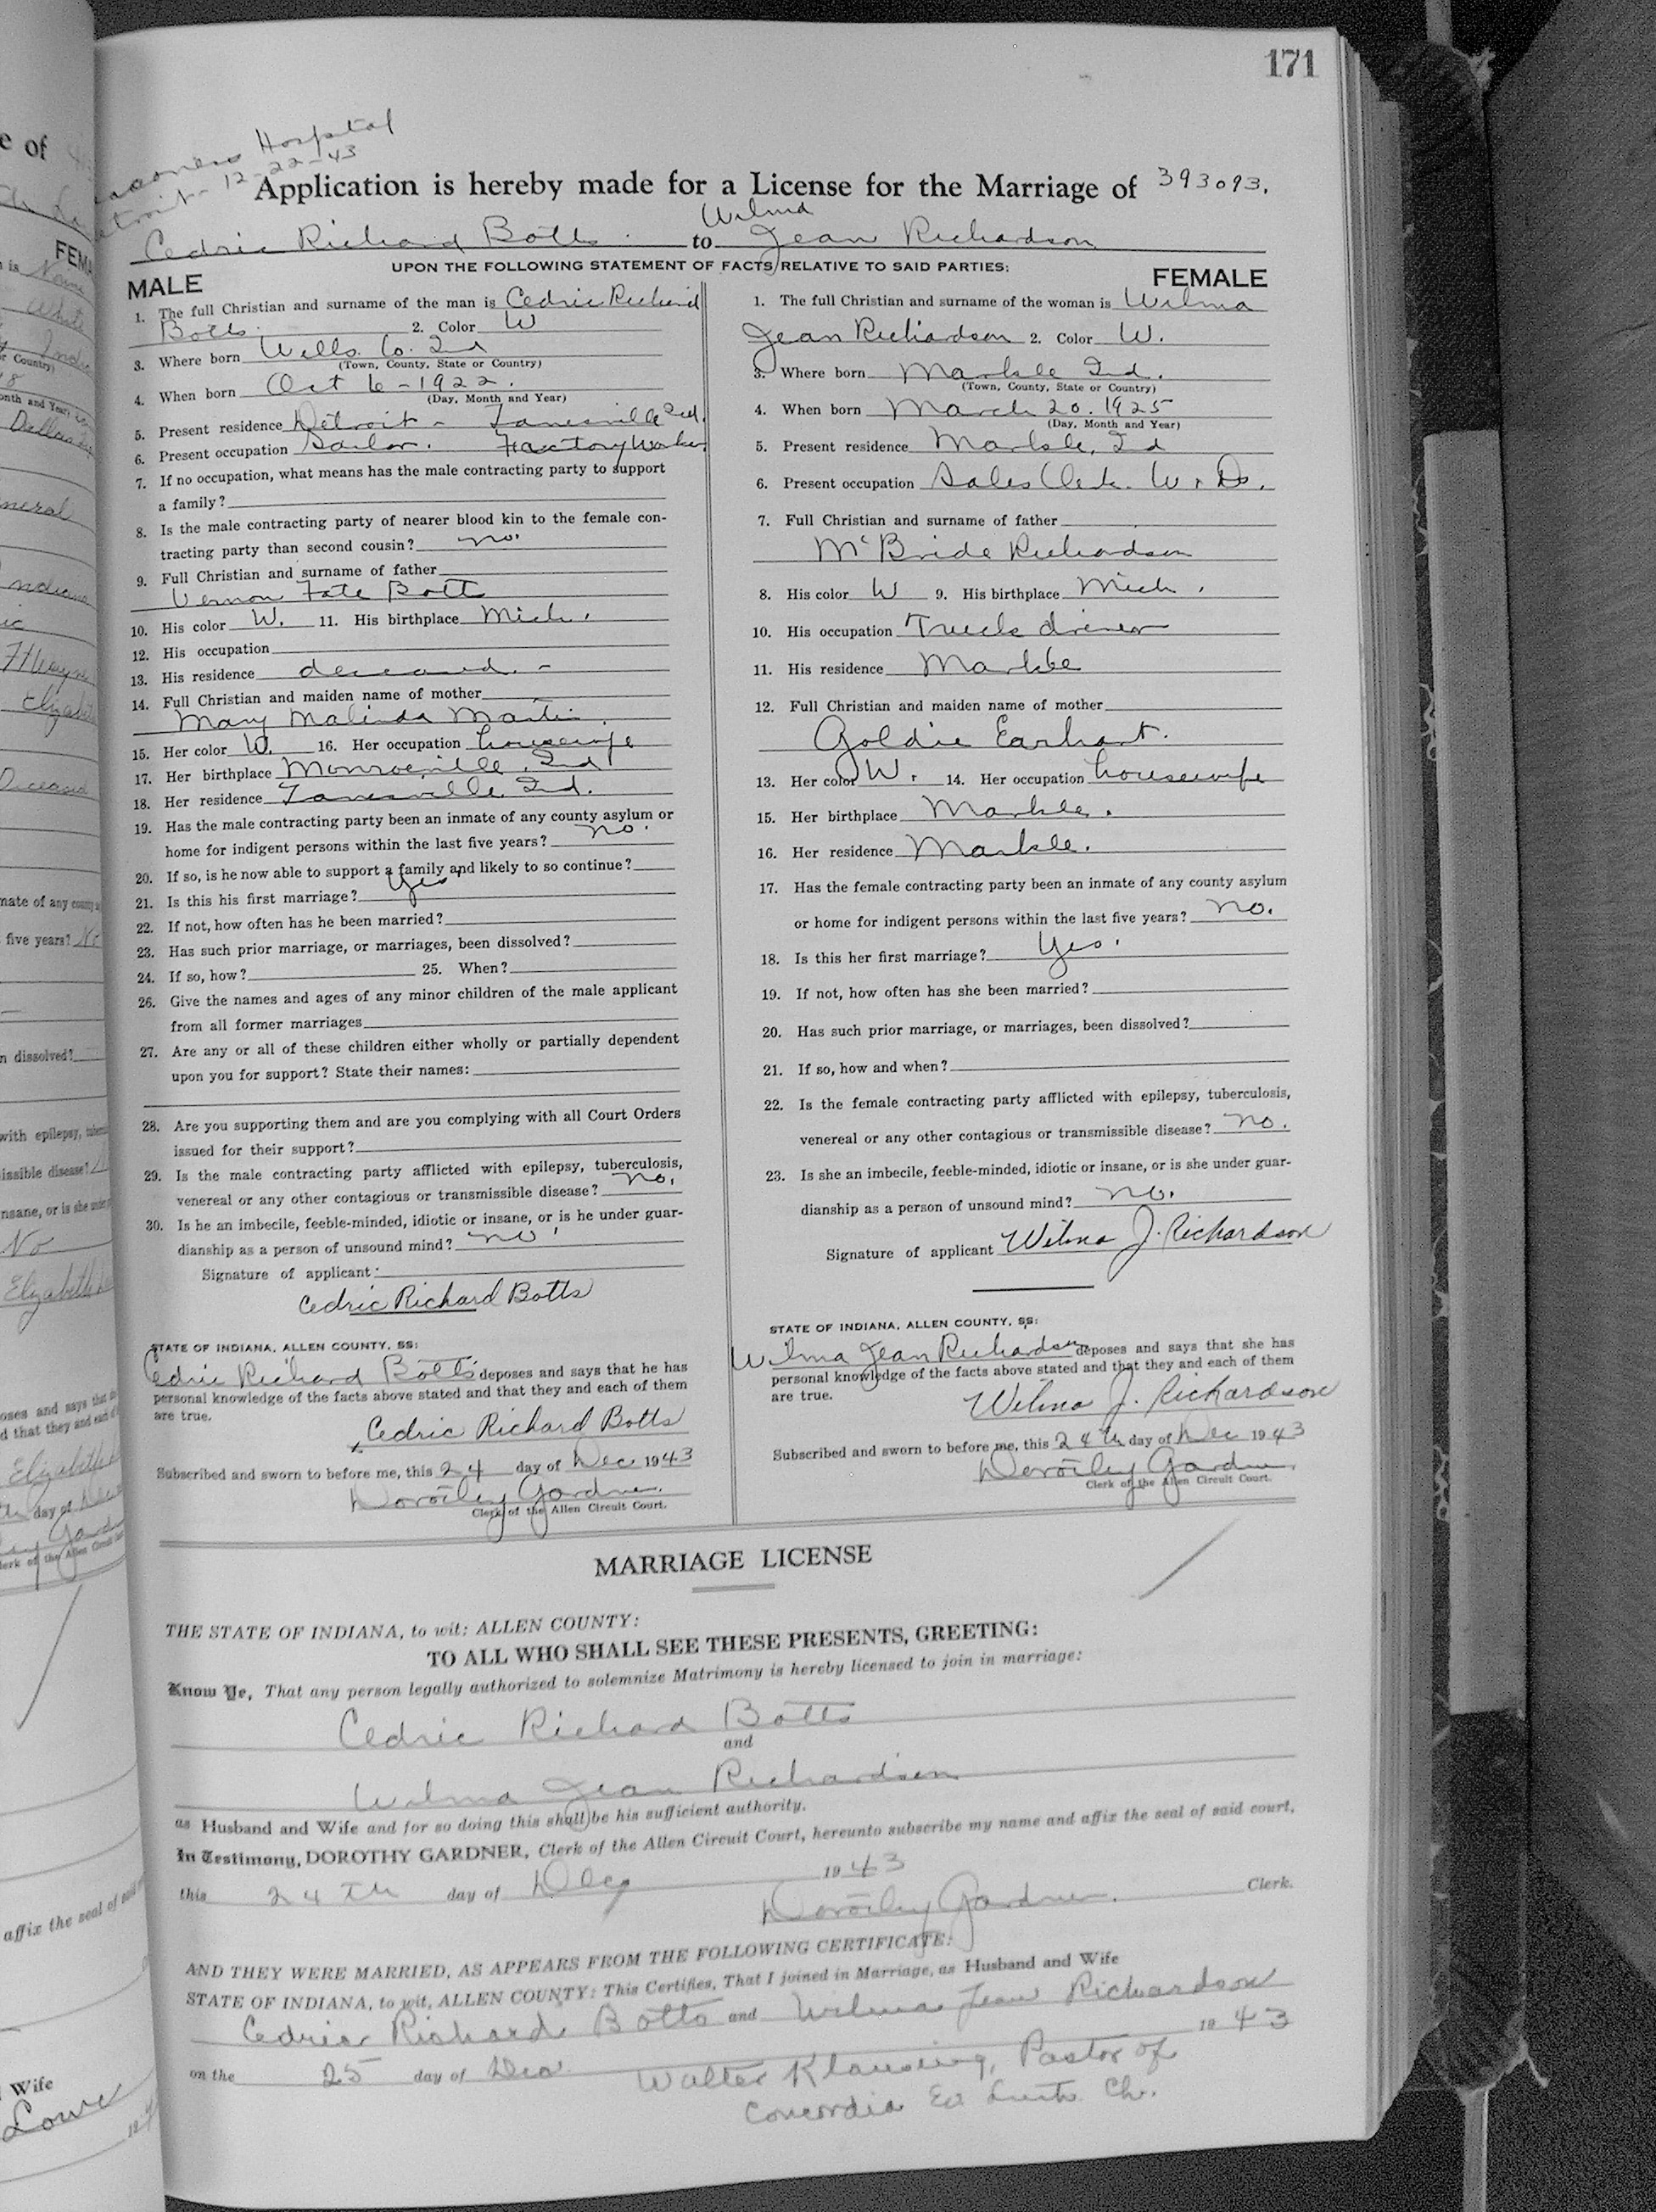 171
Hospital
12-22-43
Application is hereby made for a License for the Marriage of 393093.
Wilma
Cedric Richard Botts to Jean Richardson
UPON THE FOLLOWING STATEMENT OF FACTS RELATIVE TO SAID PARTIES:
MALE
1. The full Christian and surname of the man is Cedric Richard
Botts. 2. Color W
3. Where born Wells Co. Ind
(Town, County, State or Country)
4. When born Oct 6-1922.
(Day, Month and Year)
5. Present residence Detroit - Zanesville Ind.
6. Present occupation Sailor. Factory Worker
7. If no occupation, what means has the male contracting party to support
a family?
8. Is the male contracting party of nearer blood kin to the female con-
tracting party than second cousin? no.
9. Full Christian and surname of father
Vernon Fate Botts
10. His color W. 11. His birthplace Mich.
12. His occupation
13. His residence deceased. -
14. Full Christian and maiden name of mother
Mary Malinda Martin.
15. Her color W. 16. Her occupation housewife
17. Her birthplace Monroeville, Ind
18. Her residence Zanesville Ind.
19. Has the male contracting party been an inmate of any county asylum or
home for indigent persons within the last five years? no.
20. If so, is he now able to support a family and likely to so continue?
21. Is this his first marriage? Yes
22. If not, how often has he been married?
23. Has such prior marriage, or marriages, been dissolved?
24. If so, how? 25. When?
26. Give the names and ages of any minor children of the male applicant
from all former marriages
27. Are any or all of these children either wholly or partially dependent
upon you for support? State their names:
28. Are you supporting them and are you complying with all Court Orders
issued for their support?
29. Is the male contracting party afflicted with epilepsy, tuberculosis,
venereal or any other contagious or transmissible disease? no.
30. Is he an imbecile, feeble-minded, idiotic or insane, or is he under guar-
dianship as a person of unsound mind? no.
Signature of applicant:
Cedric Richard Botts
STATE OF INDIANA, ALLEN COUNTY, SS:
Cedric Richard Botts deposes and says that he has
personal knowledge of the facts above stated and that they and each of them
are true.
x Cedric Richard Botts
Subscribed and sworn to before me, this 24 day of Dec 1943
Dorothy Gardner.
Clerk of the Allen Circuit Court.
FEMALE
1. The full Christian and surname of the woman is Wilma
Jean Richardson 2. Color W.
3. Where born Markle Ind.
(Town, County, State or Country)
4. When born March 20. 1925
(Day, Month and Year)
5. Present residence Markle, Ind
6. Present occupation Sales Clerk. W. + Ds.
7. Full Christian and surname of father
McBride Richardson
8. His color W 9. His birthplace Mich.
10. His occupation Truck driver
11. His residence Markle
12. Full Christian and maiden name of mother
Goldie Earhart.
13. Her color W. 14. Her occupation housewife
15. Her birthplace Markle.
16. Her residence Markle.
17. Has the female contracting party been an inmate of any county asylum
or home for indigent persons within the last five years? no.
18. Is this her first marriage? Yes.
19. If not, how often has she been married?
20. Has such prior marriage, or marriages, been dissolved?
21. If so, how and when?
22. Is the female contracting party afflicted with epilepsy, tuberculosis,
venereal or any other contagious or transmissible disease? no.
23. Is she an imbecile, feeble-minded, idiotic or insane, or is she under guar-
dianship as a person of unsound mind? no.
Signature of applicant Wilma J. Richardson
STATE OF INDIANA, ALLEN COUNTY, SS:
Wilma Jean Richardson deposes and says that she has
personal knowledge of the facts above stated and that they and each of them
are true.
Wilma J. Richardson
Subscribed and sworn to before me, this 24th day of Dec 1943
Dorothy Gardner.
Clerk of the Allen Circuit Court.
MARRIAGE LICENSE
THE STATE OF INDIANA, to wit: ALLEN COUNTY:
TO ALL WHO SHALL SEE THESE PRESENTS, GREETING:
Know Ye, That any person legally authorized to solemnize Matrimony is hereby licensed to join in marriage:
Cedric Richard Botts
and
Wilma Jean Richardson
as Husband and Wife and for so doing this shall be his sufficient authority.
In Testimony, DOROTHY GARDNER, Clerk of the Allen Circuit Court, hereunto subscribe my name and affix the seal of said court,
this 24th day of Dec 1943
Dorothy Gardner. Clerk.
AND THEY WERE MARRIED, AS APPEARS FROM THE FOLLOWING CERTIFICATE:
STATE OF INDIANA, to wit, ALLEN COUNTY: This Certifies, That I joined in Marriage, as Husband and Wife
Cedric Richard Botts and Wilma Jean Richardson
on the 25 day of Dec 1943
Walter Klausing, Pastor of
Concordia Ev Luth. Ch.